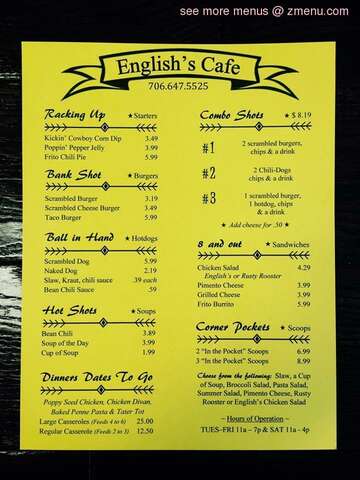 see more menus @ zmenu.com
English's Cafe
706.647.5525
Racking Up ★Starters
Kickin' Cowboy Corn Dip 3.49
Poppin' Pepper Jelly 3.99
Frito Chili Pie 5.99
Bank Shot ★Burgers
Scrambled Burger 3.19
Scrambled Cheese Burger 3.49
Taco Burger 5.99
Ball in Hand ★Hotdogs
Scrambled Dog 5.99
Naked Dog 2.19
Slaw, Kraut, chili sauce .39 each
Bean Chili Sauce .59
Hot Shots ★Soups
Bean Chili 3.89
Soup of the Day 3.99
Cup of Soup 1.99
Dinners Dates To Go
Poppy Seed Chicken, Chicken Divan,
Baked Penne Pasta & Tater Tot
Large Casseroles (Feeds 4 to 6) 25.00
Regular Casserole (Feeds 2 to 3) 12.50
Combo Shots ★ $ 8.19
#1 2 scrambled burgers,
chips & a drink
#2 2 Chili-Dogs
chips & a drink
#3 1 scrambled burger,
1 hotdog, chips
& a drink
★ Add cheese for .50 ★
8 and out ★ Sandwiches
Chicken Salad 4.29
English's or Rusty Rooster
Pimento Cheese 3.99
Grilled Cheese 3.99
Frito Burrito 5.99
Corner Pockets ★ Scoops
2 "In the Pocket" Scoops 6.99
3 "In the Pocket" Scoops 8.99
Choose from the following: Slaw, a Cup
of Soup, Broccoli Salad, Pasta Salad,
Summer Salad, Pimento Cheese, Rusty
Rooster or English's Chicken Salad
~ Hours of Operation ~
TUES-FRI 11a – 7p & SAT 11a - 4p